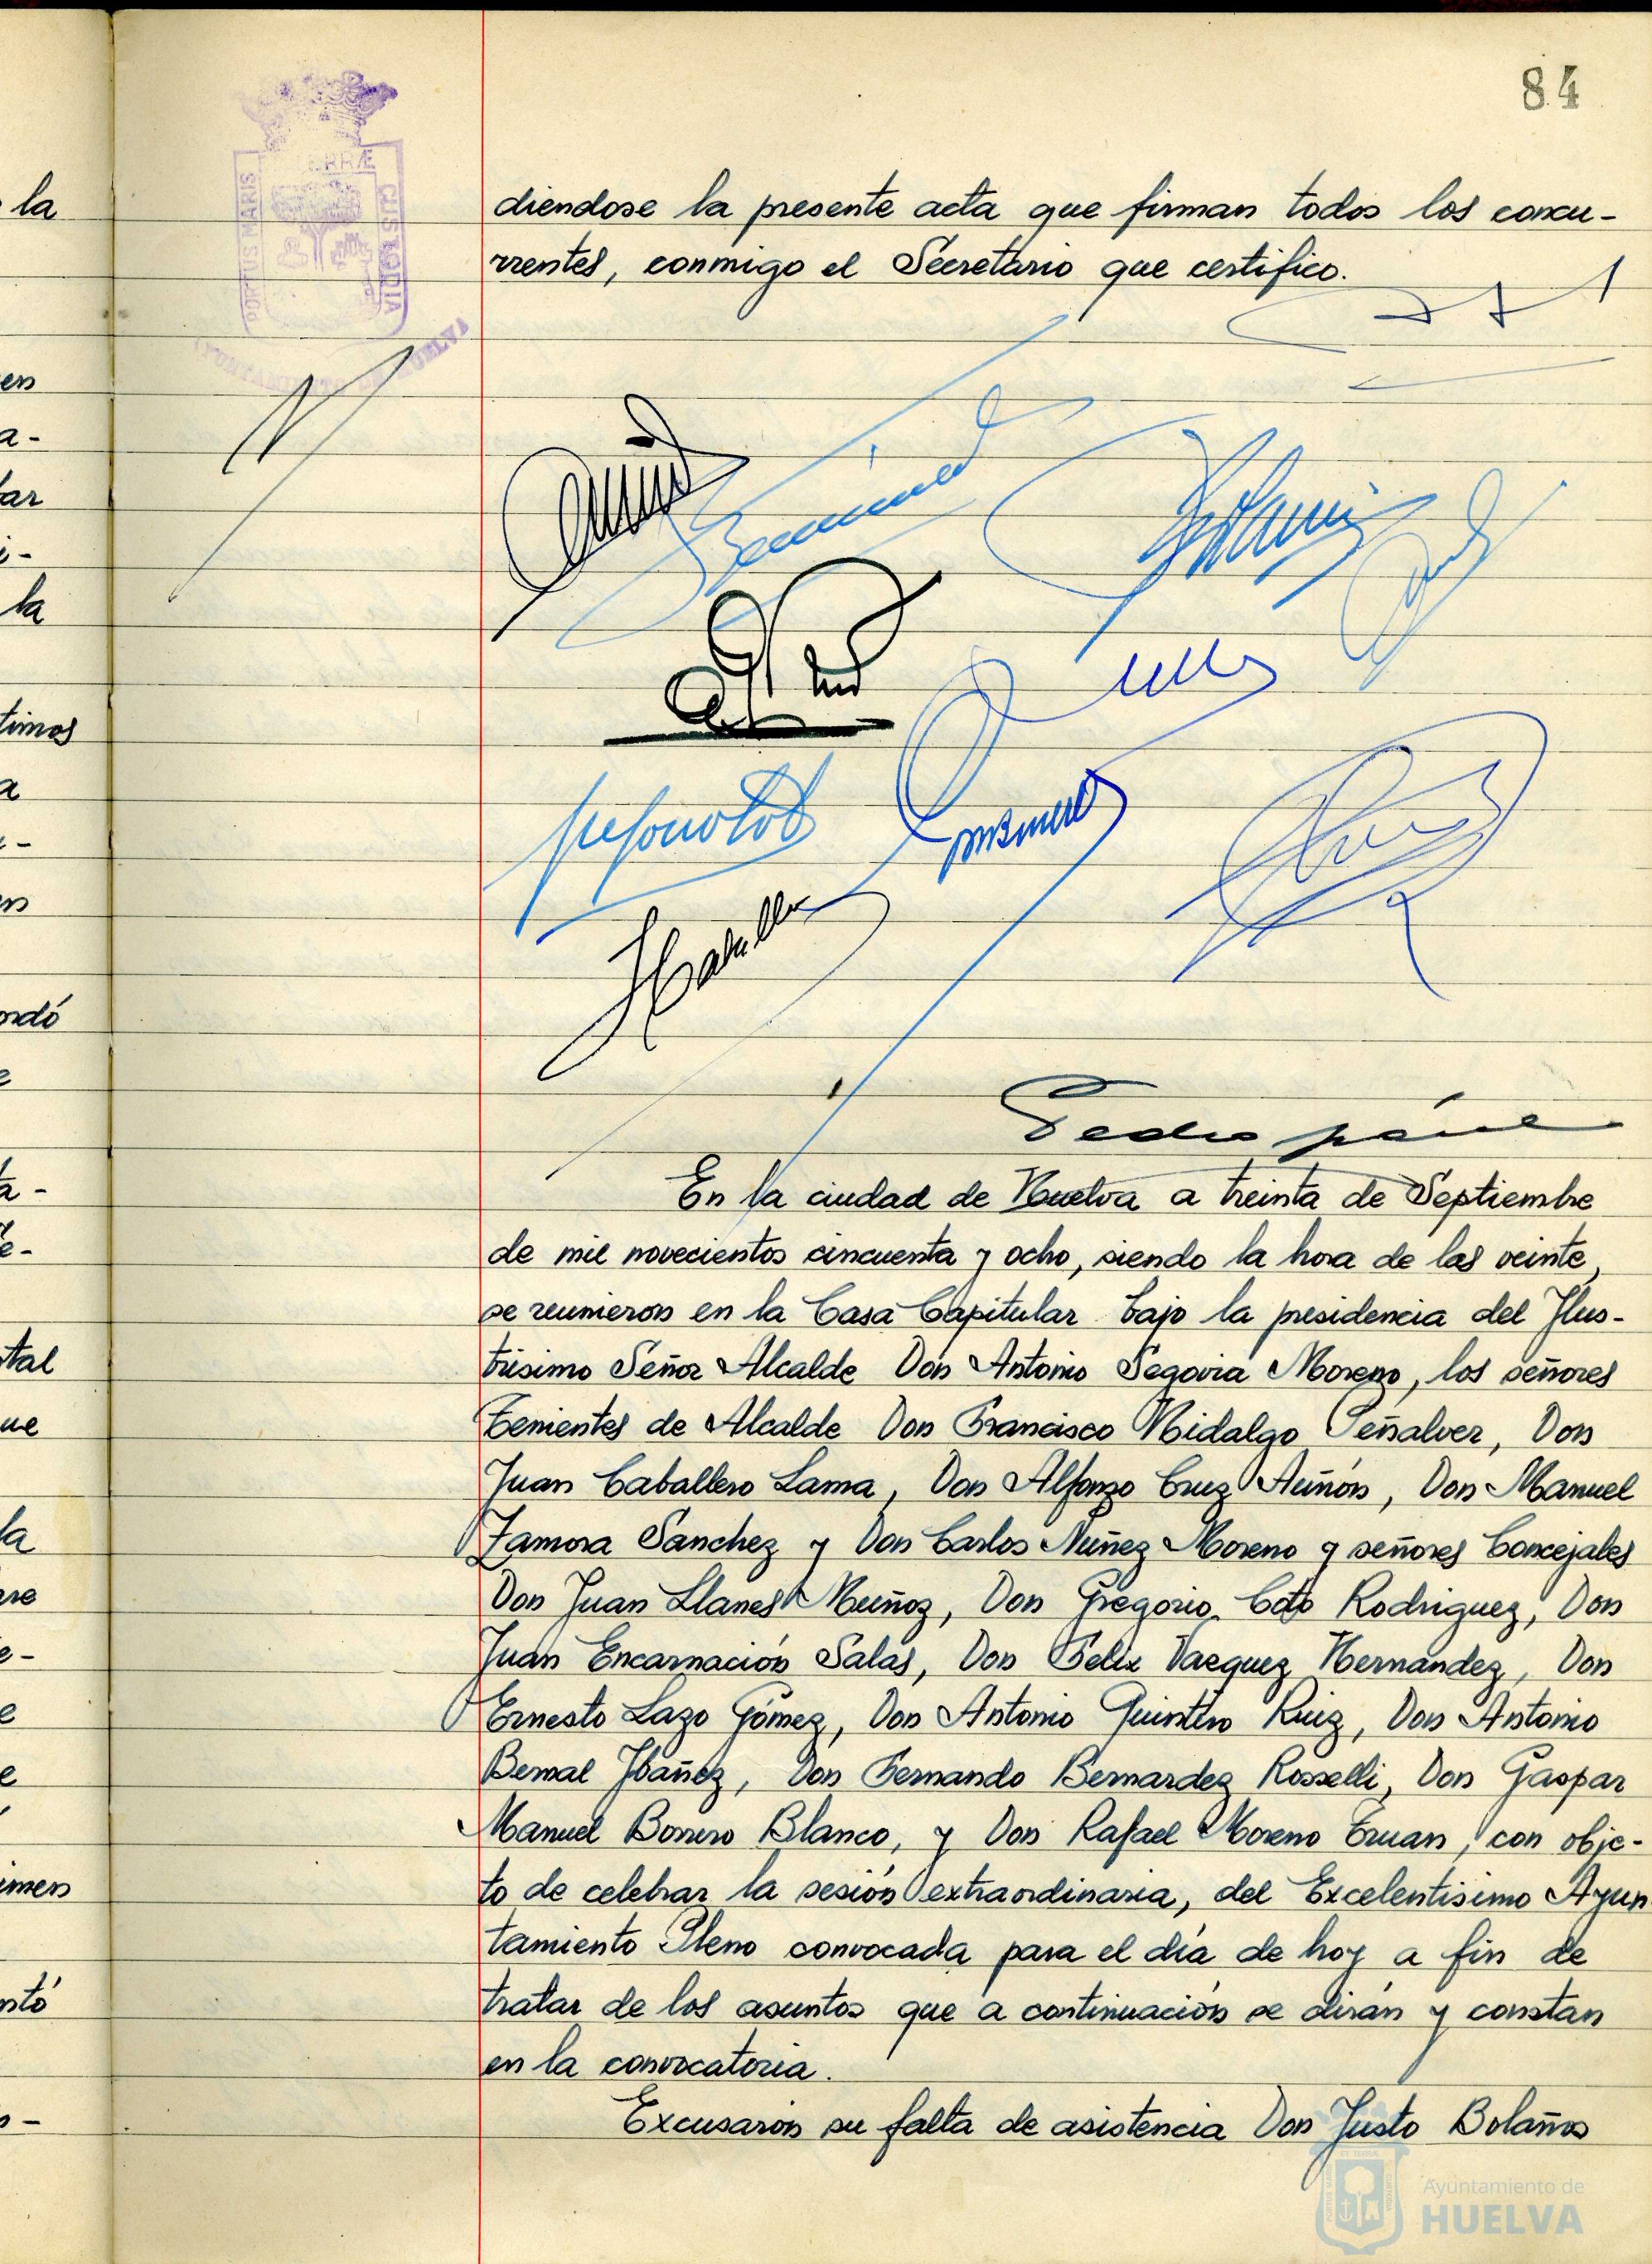 84
PORTUS MARIS
TERRÆ
CUSTODIA
AYUNTAMIENTO DE HUELVA
diendose la presente acta que firman todos los concu-
rrentes, conmigo el Secretario que certifico.
En la ciudad de Huelva a treinta de Septiembre
de mil novecientos cincuenta y ocho, siendo la hora de las veinte,
se reunieron en la Casa Capitular bajo la presidencia del Ilus-
trisimo Señor Alcalde Don Antonio Segovia Moreno, los señores
Tenientes de Alcalde Don Francisco Hidalgo Peñalver, Don
Juan Caballero Lama, Don Alfonso Cruz Auñón, Don Manuel
Zamora Sanchez y Don Carlos Nuñez Moreno y señores Concejales
Don Juan Llanes Muñoz, Don Gregorio Coto Rodriguez, Don
Juan Encarnación Salas, Don Felix Vazquez Hernandez, Don
Ernesto Lazo Gómez, Don Antonio Quintero Ruiz, Don Antonio
Bernal Ybañez, Don Fernando Bernardez Rosselli, Don Gaspar
Manuel Borrero Blanco, y Don Rafael Moreno Eruan, con obje-
to de celebrar la sesión extraordinaria, del Excelentisimo Ayun
tamiento Pleno convocada para el día de hoy a fin de
tratar de los asuntos que a continuación se dirán y constan
en la convocatoria.
Excusaron su falta de asistencia Don Justo Bolaños
la
en
a-
bar
i-
la
timos
a
ordó
tal
ue
la
imen
Ayuntamiento de
HUELVA